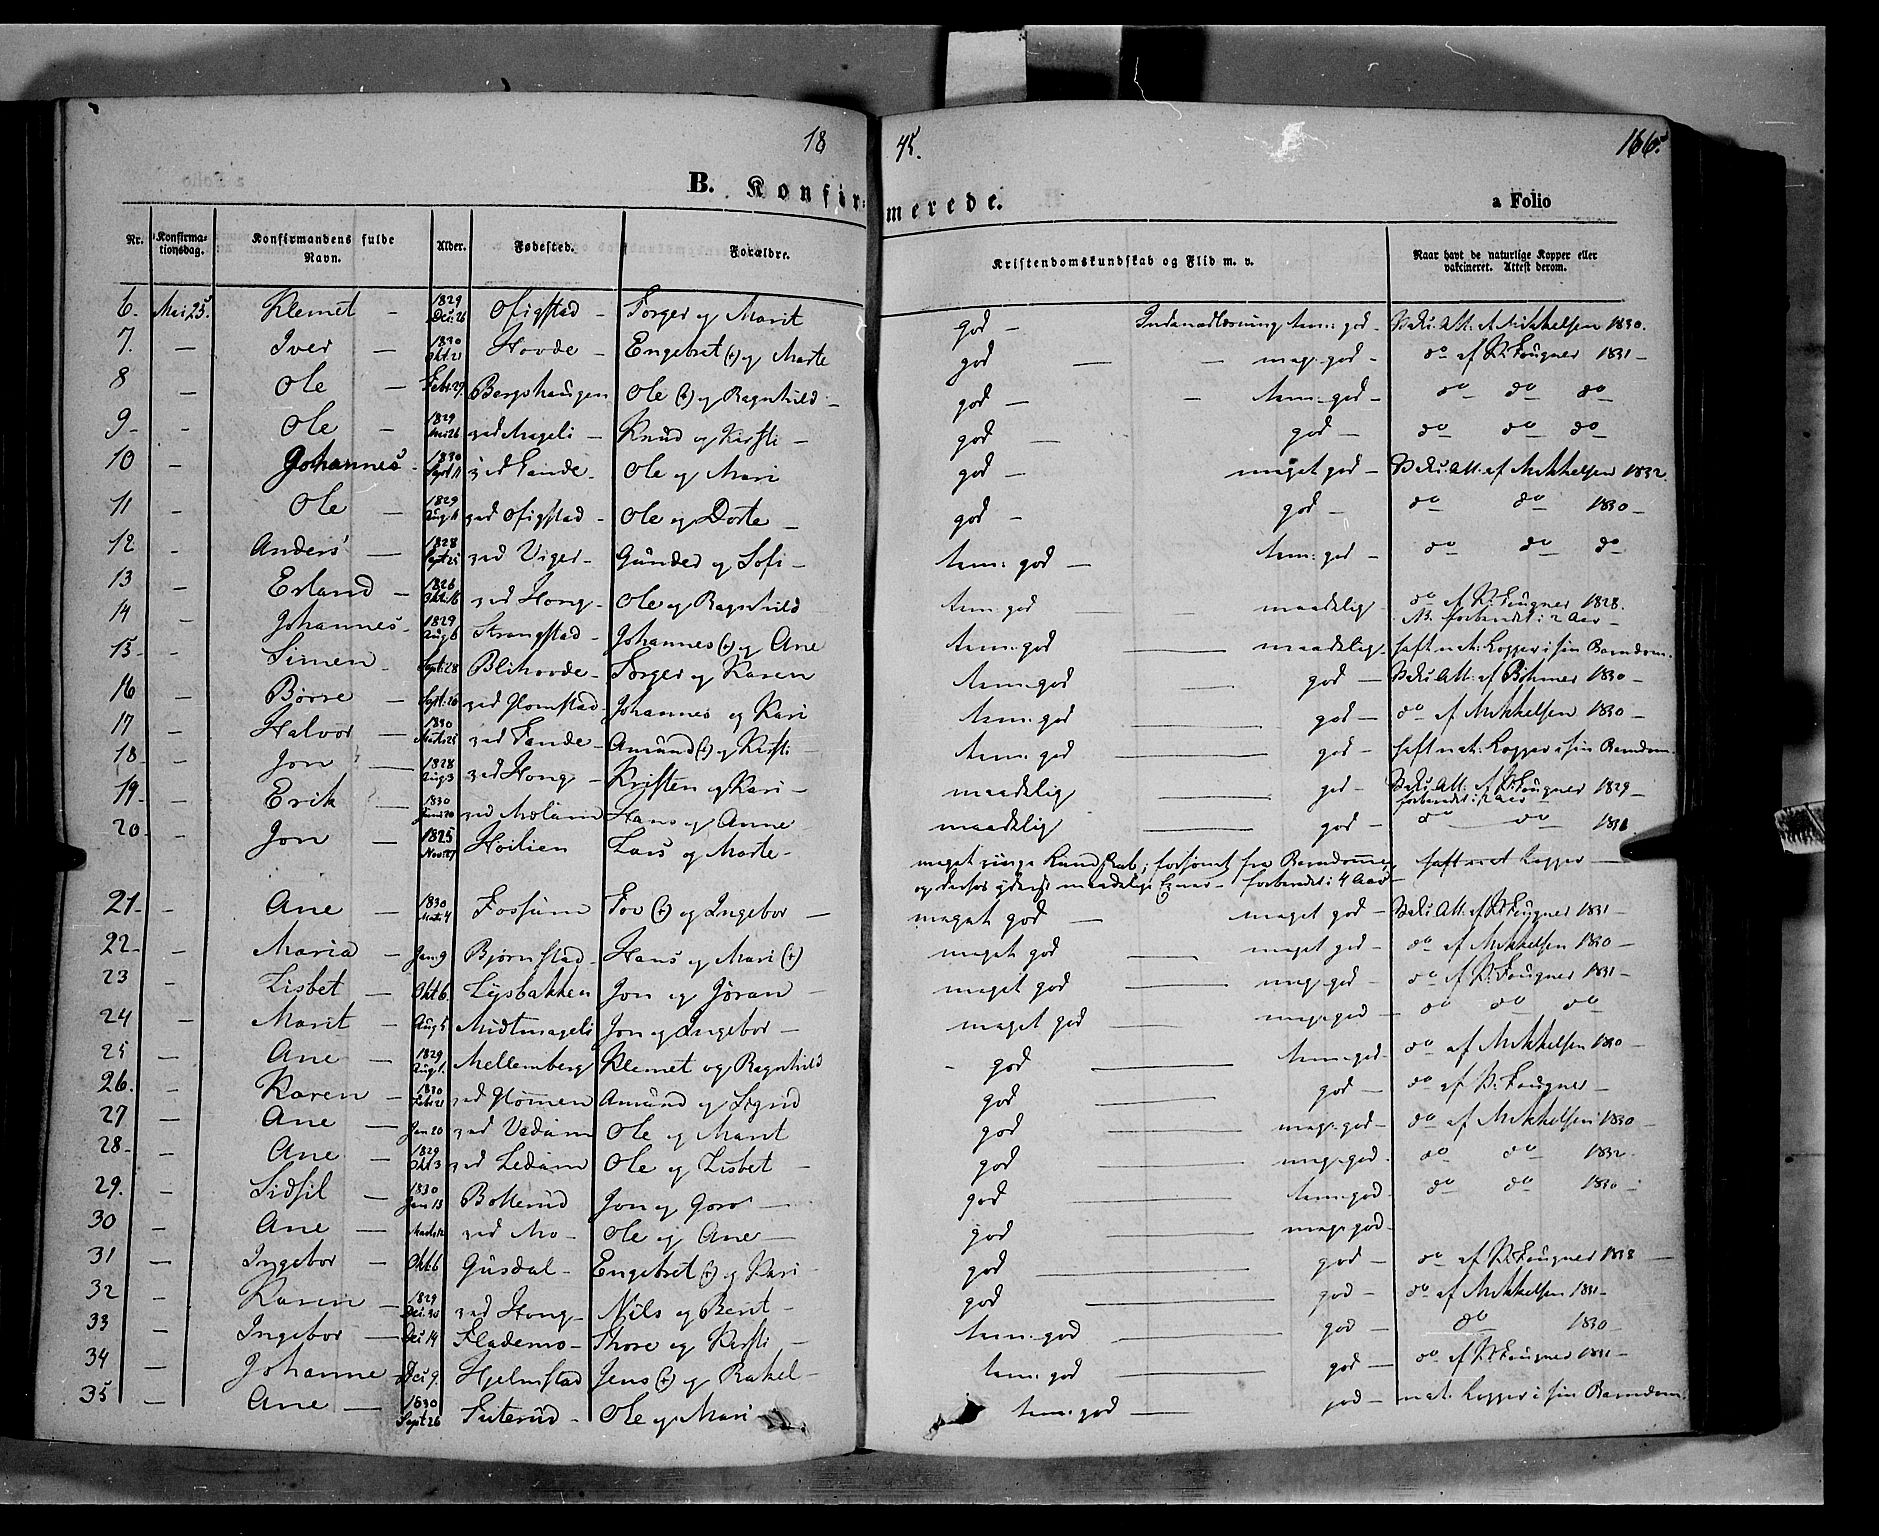 18 45. 166.
B. Konfirmerede. a Folio
Nr. Konfirmationsdag. Konfirmandens fulde Navn. Alder. Fødested. Forældre. Kristendomskundskab og Flid m. v. Naar havt de naturlige Kopper eller vakcineret. Attest derom.
6. Mai 25. Klemet – 1829 Dec: 26 Ofigstad – Torger og Marit god – Indenadlæsning tem: god – Vaks: Att: af Mikkelsen 1830.
7. – Iver – 1830 Okt. 21 Hovde – Engebret (+) og Marte god – – meg: god – do af P: Fougner 1831 –
8 – Ole – Febr: 29. Bergshaugen Ole (+) og Ragnhild – god – – tem: god – do do do
9 – – Ole – 1829 Mai 26 ved Mageli – Knud og Kirsti – god – god – do do do
10 – Johannes – 1830 Sept. 11 ved Fande – Ole og Mari god – meget god – Vaks: Att: af Mikkelsen 1832.
11 – Ole – 1829 Aug: 11 ved Ofigstad – Ole og Dorte – god – god – do do 1830 –
12 – Anders – 1828 Sept: 25 ved Viger – Gunder og Sofi – tem: god – tem: god – do do do
13 – Erland – 1826 Okt: 16 ved Hong – Ole og Ragnhild tem: god – maadelig do af P: Fougner 1828. NB. forberedt i 2 Aar –
14 – Johannes – 1829 Aug 6 Strangstad – Johannes (+) og Ane tem: god – maadelig – haft nat: Kopper i sin Barndom.
15 – – Simen – Sept: 28 Blihovde – Torger og Karen tem: god – god – Vaks: Att: af Bøhmer 1830 –
16 – Børre – Sept. 26 ved Homstad – Johannes og Kari tem: god – god – do af Mikkelsen 1830 –
17 – Halvor – 1830 Marts 25 ved Fande – Amund (+) og Kirsti – tem: god – god – haft nat: Kopper i sin Barndom
18 – – Jon – 1828 Aug 3 ved Hong – Kristen og Kari – maadelig – god – Vaks: Att: af P: Fougner 1829 – forberedt i 2 Aar –
19 – – Erik – 1830 Juni 20 ved Molum Hans og Anne maadelig – god – do do 1831
20 – – Jon – 1825 Nov: 27 Hoilien Lars og Marte – meget ringe Kundskab; forsømt fra Barndommen haft nat Kopper –
og derhos yderst maadelige Evner – forberedt i 4 Aar –
21 – – Ane – 1830 Mart: 4 Fossum Tov (+) og Ingebor – meget god – meget god – Vaks: Att: af P: Fougner 1831 –
22 – – Maria – Jan: 9 Bjørnstad – Hans og Mari (+) meget god – meget god – do af Mikkelsen 1830 –
23 – Lisbet – Okt 6. Lysbakken Jon og Jøran – meget god – meg: god – do af P: Fougner 1831 –
24 – Marit – Aug 5 Midtmageli Jon og Ingebor – meget god – meg: god – do do do
25 – Ane – 1829 Aug 1. Mellemberg Klemet og Ragnhild – god – tem: god – do af Mikkelsen 1830 –
26. – Karen – 1830 Febr: 21 ved Homen Amund og Sigrid god – god – do af P: Fougner –
27 – Ane – Jan 20 ved Vedum Ole og Marit god – meg: god – do af Mikkelsen 1830 –
28 – – Ane – 1829 Okt 3 ved Ledum Ole og Lisbet – god – meg: god – do do 1832 –
29. – Sidsil – 1830 Jan 13 Botterud Jon og Goro – god – tem: god – do do 1830 –
30 – Ane – Marts 12 ved Mo – Ole og Ane – god – meg: god –
31 – Ingebor – Okt: 6 Gusdal – Engebret (+) og Kari – god – god – do af P: Fougner 1838 –
32 – Karen – 1829 Dec: 30 ved Hong – Nils og Berit – god – god – do af Mikkelsen 1831 –
33 – Ingebor – Dec 14 Flademo – Thore og Kirsti – tem: god – god – do 1830 –
34 – Johanne – Dec 9. Hjelmstad Jens (+) og Rakel – tem: god – god – do af P: Fougner 1831 –
35 – Ane – 1830 Sept 26 Suterud – Ole og Mari – tem: god – god – nat: Kopper i sin Barndom.